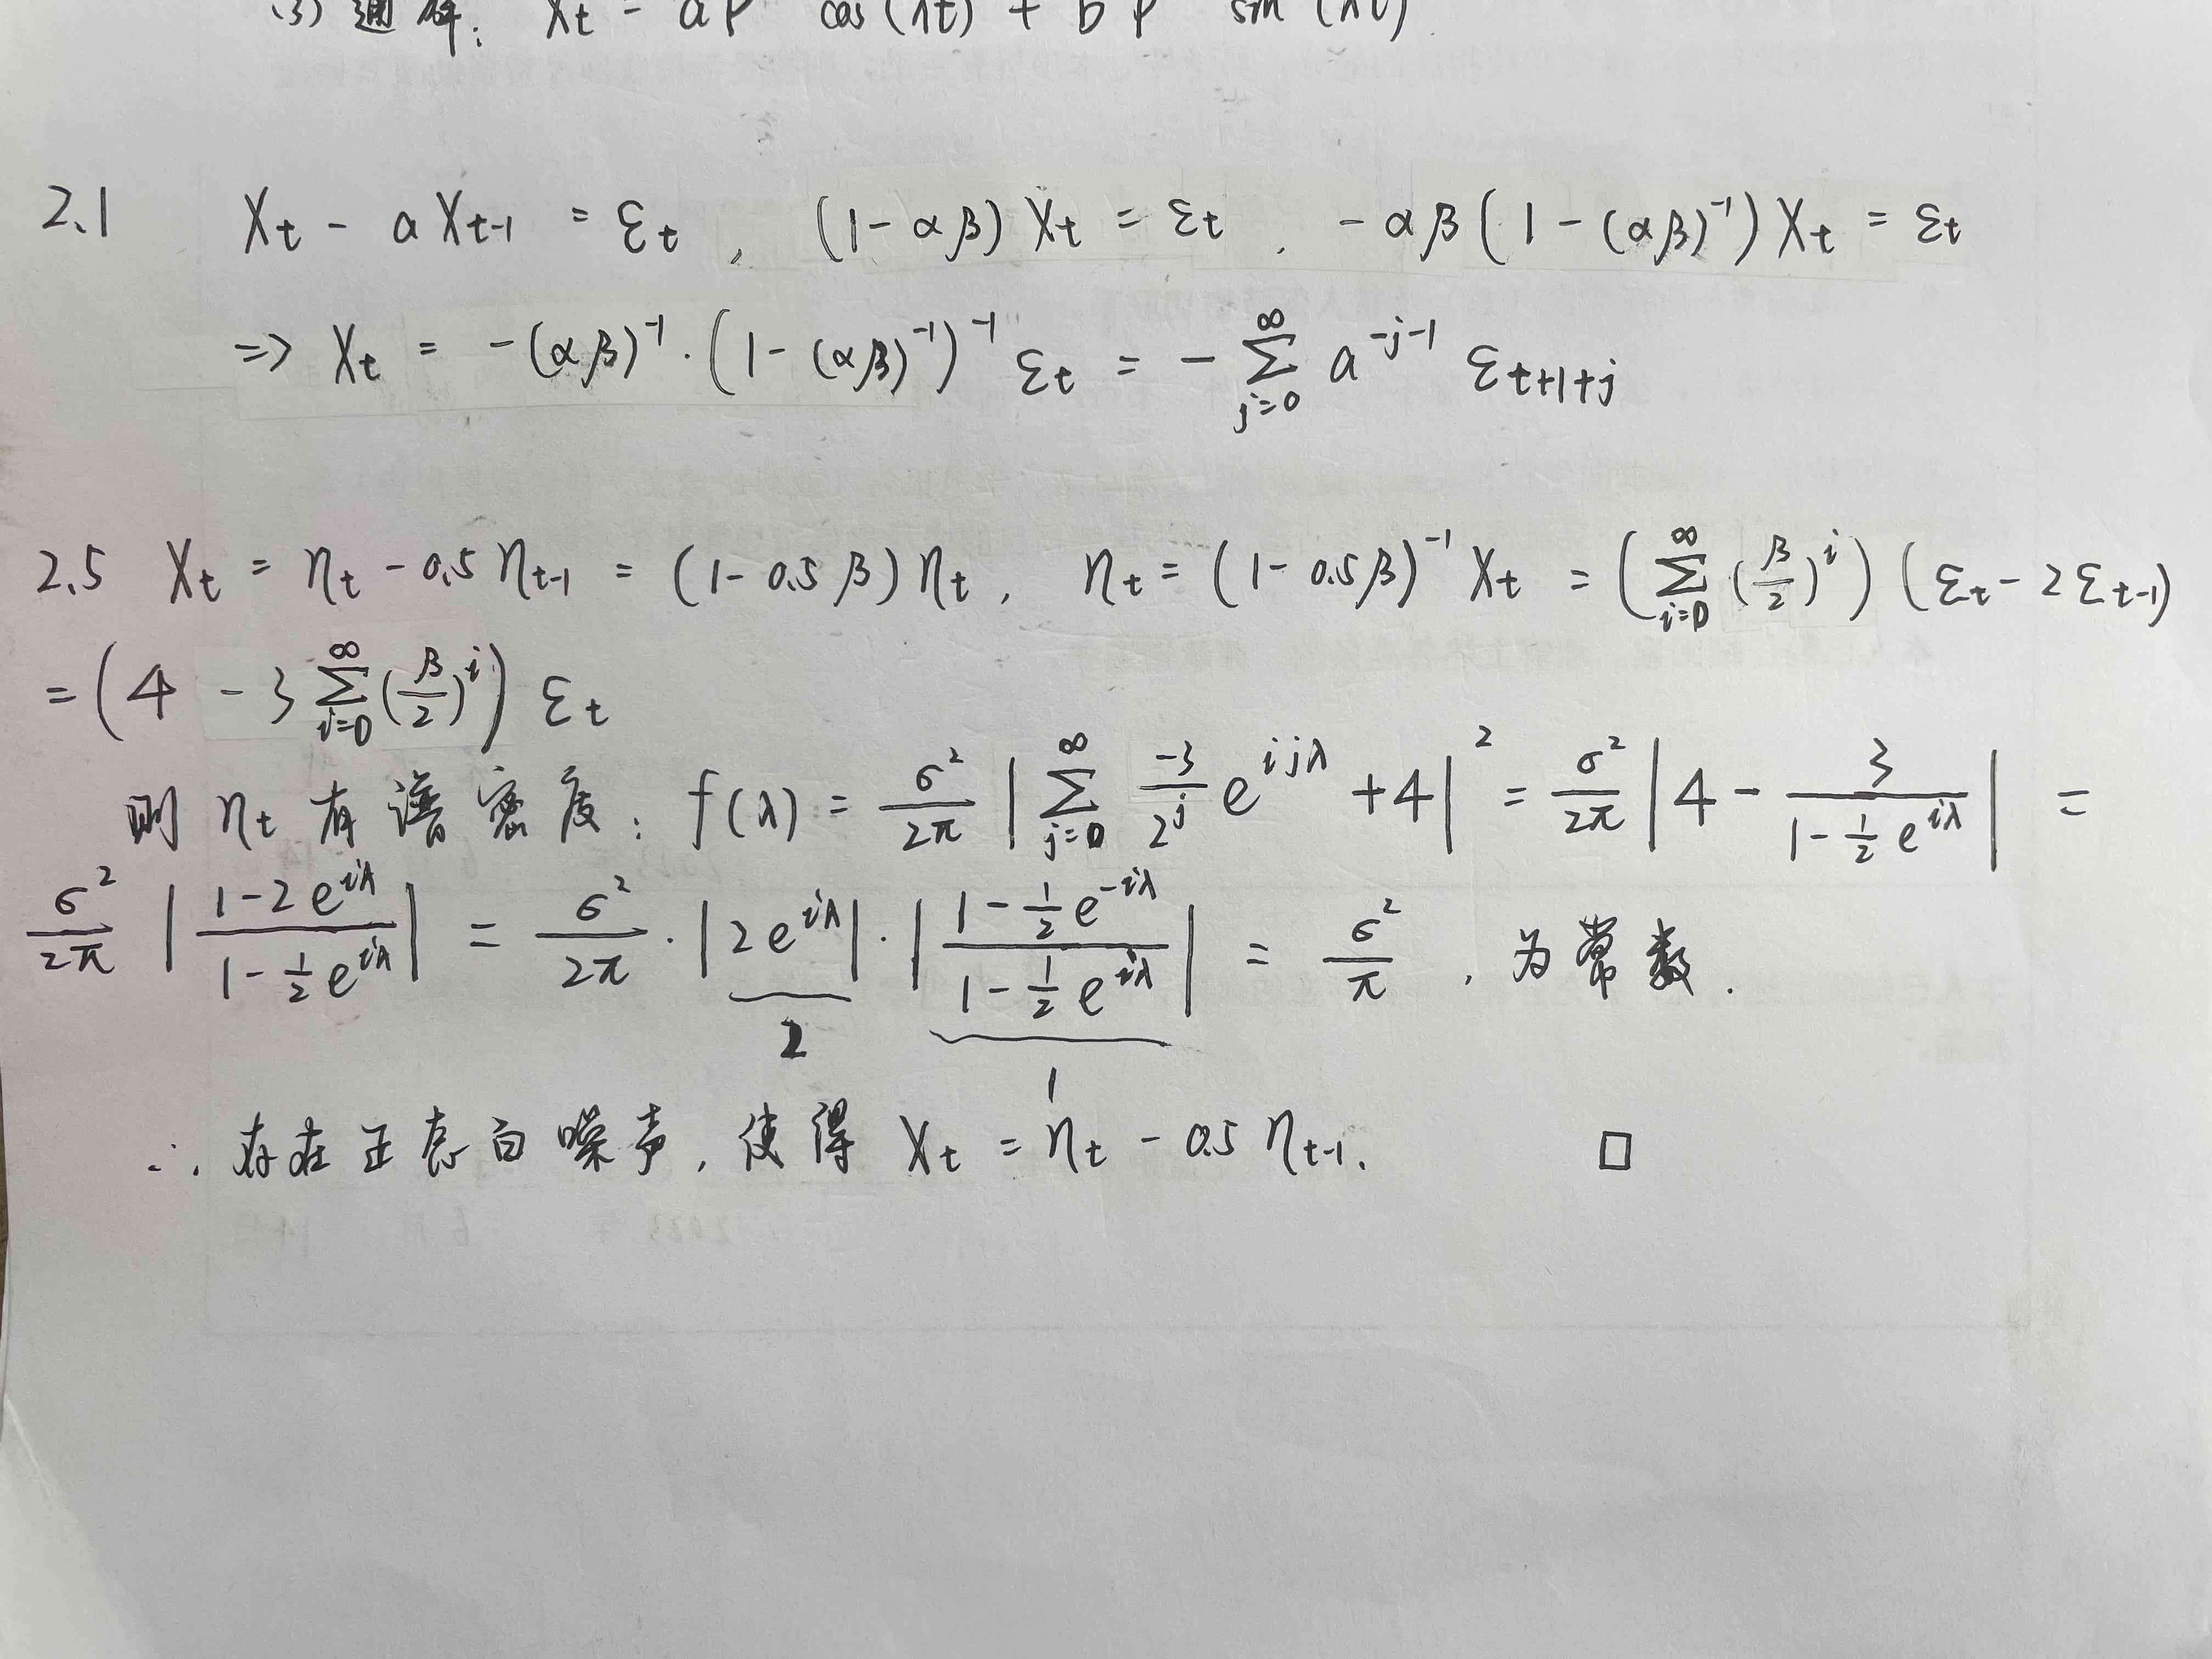 (3) 通解: Xt = aρ cos(λt) + bρ sin(λt)
2.1 Xt - aXt-1 = εt, (1-αβ)Xt = εt, -αβ(1-(αβ)^-1)Xt = εt
=> Xt = -(αβ)^-1·(1-(αβ)^-1)^-1 εt = -∑_{j=0}^{∞} a^{-j-1} εt+1+j
2.5 Xt = ηt - 0.5ηt-1 = (1-0.5β)ηt, ηt = (1-0.5β)^-1 Xt = (∑_{i=0}^{∞} (β/2)^i)(εt - 2εt-1)
= (4 - 3∑_{i=0}^{∞} (β/2)^i) εt
则 ηt 有谱密度: f(λ) = σ²/2π |∑_{j=0}^{∞} -3/2^j e^{ijλ} + 4|² = σ²/2π |4 - 3/(1-1/2 e^{iλ})| =
σ²/2π |(1-2e^{iλ})/(1-1/2 e^{iλ})| = σ²/2π · |2e^{iλ}| · |(1-1/2 e^{-iλ})/(1-1/2 e^{iλ})| = σ²/π, 为常数.
2
1
∴ 存在正态白噪声, 使得 Xt = ηt - 0.5ηt-1. □